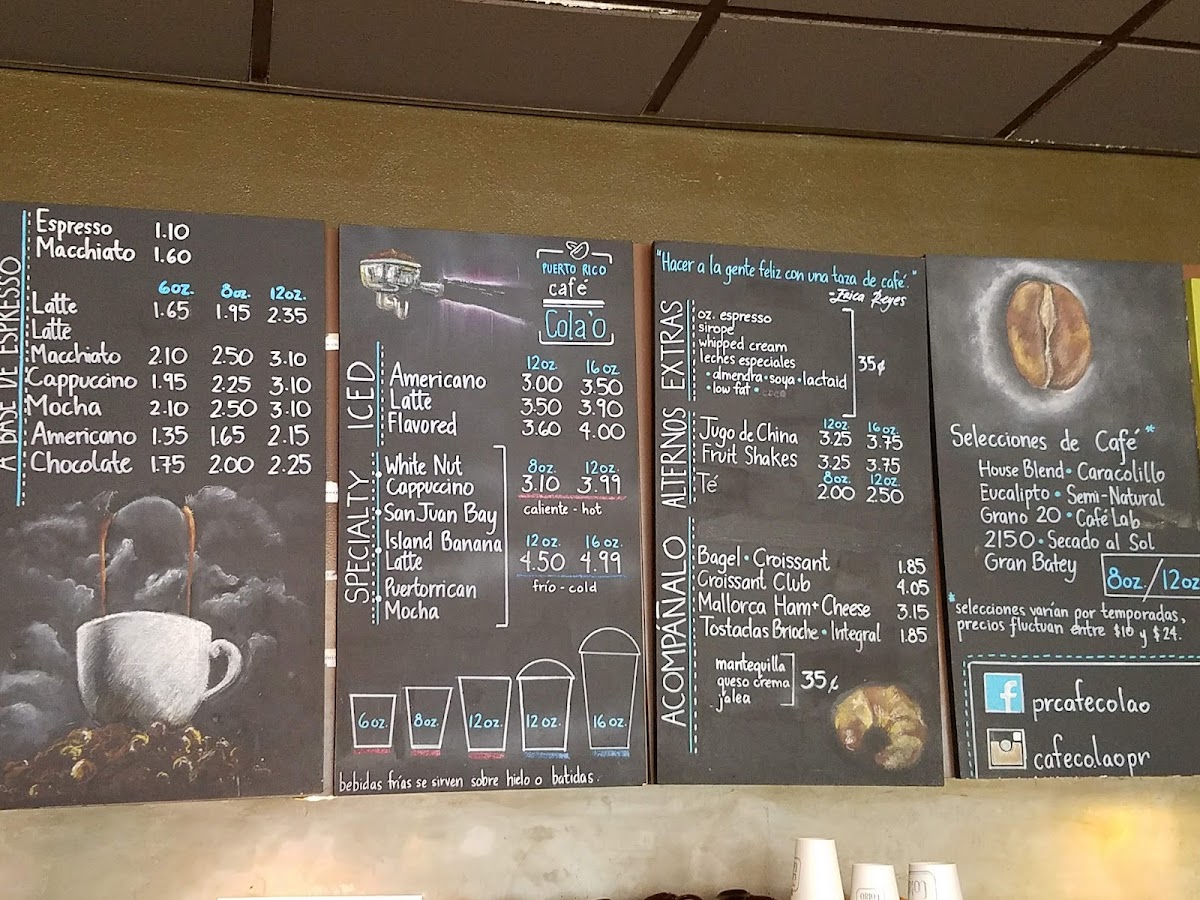 A BASE DE ESPRESSO
Espresso 1.10
Macchiato 1.60
6oz. 8oz. 12oz.
Latte 1.65 1.95 2.35
Latte
Macchiato 2.10 2.50 3.10
Cappuccino 1.95 2.25 3.10
Mocha 2.10 2.50 3.10
Americano 1.35 1.65 2.15
Chocolate 1.75 2.00 2.25
PUERTO RICO
café
Cola'o
SPECIALTY ICED
12oz. 16oz.
Americano 3.00 3.50
Latte 3.50 3.90
Flavored 3.60 4.00
White Nut 8oz. 12oz.
Cappuccino 3.10 3.99
San Juan Bay caliente - hot
Island Banana 12oz. 16oz.
Latte 4.50 4.99
Puertorrican frío - cold
Mocha
6oz. 8oz. 12oz. 12oz. 16oz.
bebidas frías se sirven sobre hielo o batidas.
"Hacer a la gente feliz con una taza de café."
Erica Reyes
ACOMPÁÑALO ALTERNOS EXTRAS
oz. espresso
sirope
whipped cream
leches especiales 35¢
• almendra • soya • lactaid
• low fat • coco
12oz. 16oz.
Jugo de China 3.25 3.75
Fruit Shakes 3.25 3.75
8oz. 12oz.
Té 2.00 2.50
Bagel • Croissant 1.85
Croissant Club 4.05
Mallorca Ham + Cheese 3.15
Tostadas Brioche • Integral 1.85
mantequilla
queso crema 35¢
jalea
Selecciones de Café*
House Blend • Caracolillo
Eucalipto • Semi-Natural
Grano 20 • Café Lab
2150 • Secado al Sol
Gran Batey 8oz./12oz
*selecciones varían por temporadas,
precios fluctuan entre $10 y $24.
f prcafecolao
cafecolaopr